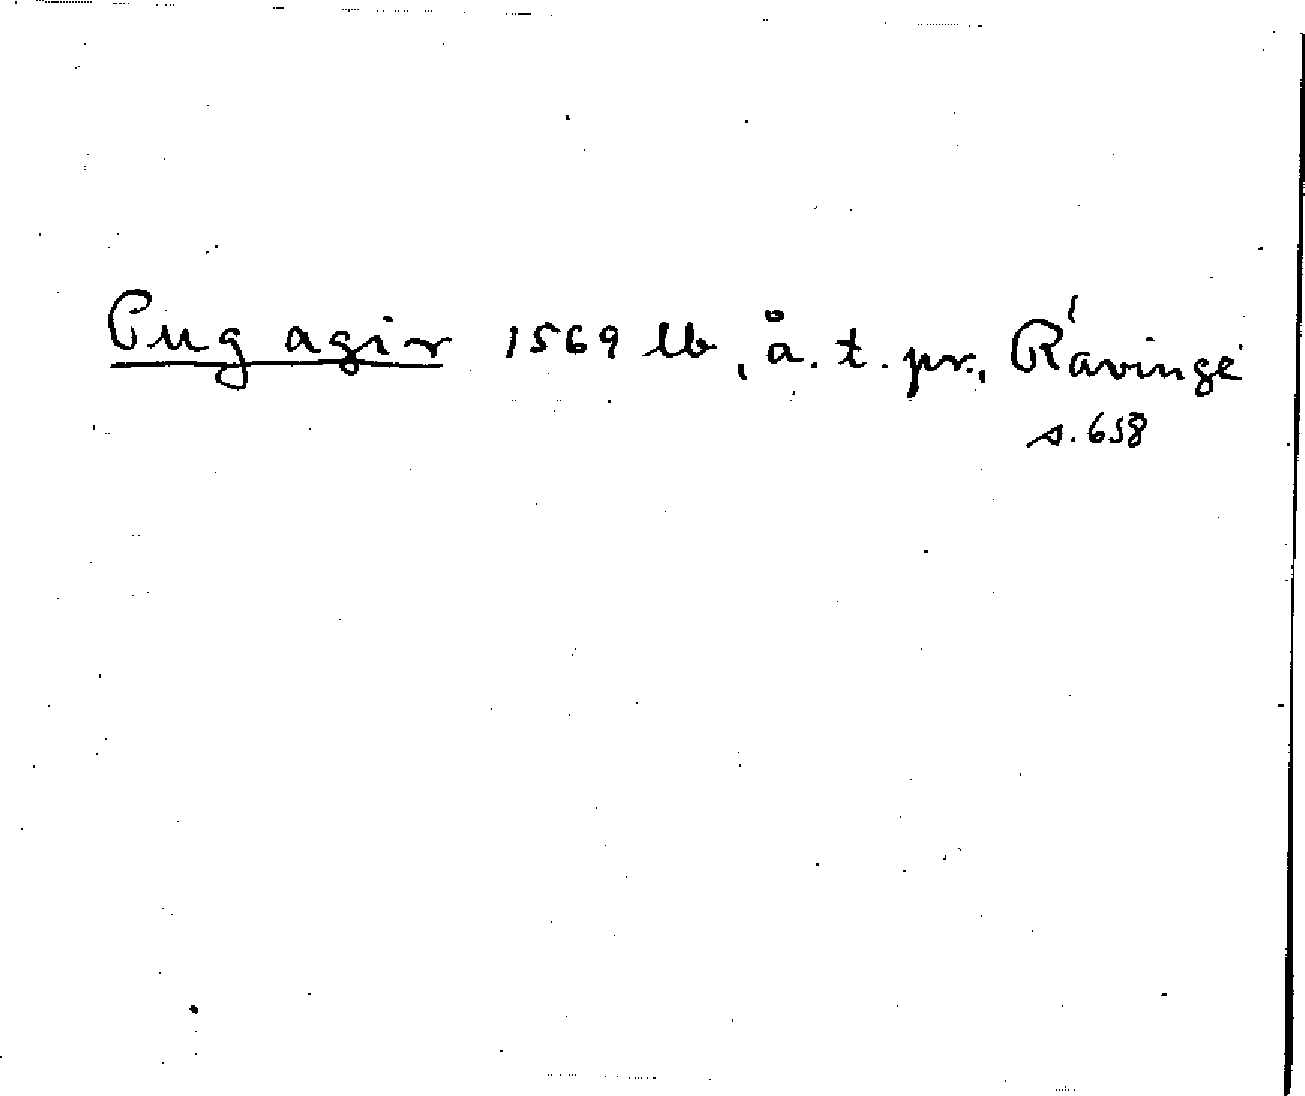 Pug agir 1569 lb, å. t. pr., Rävinge
s. 658